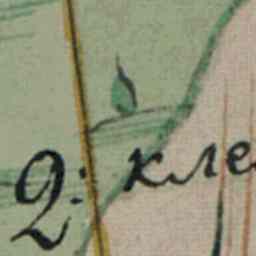 2: кле